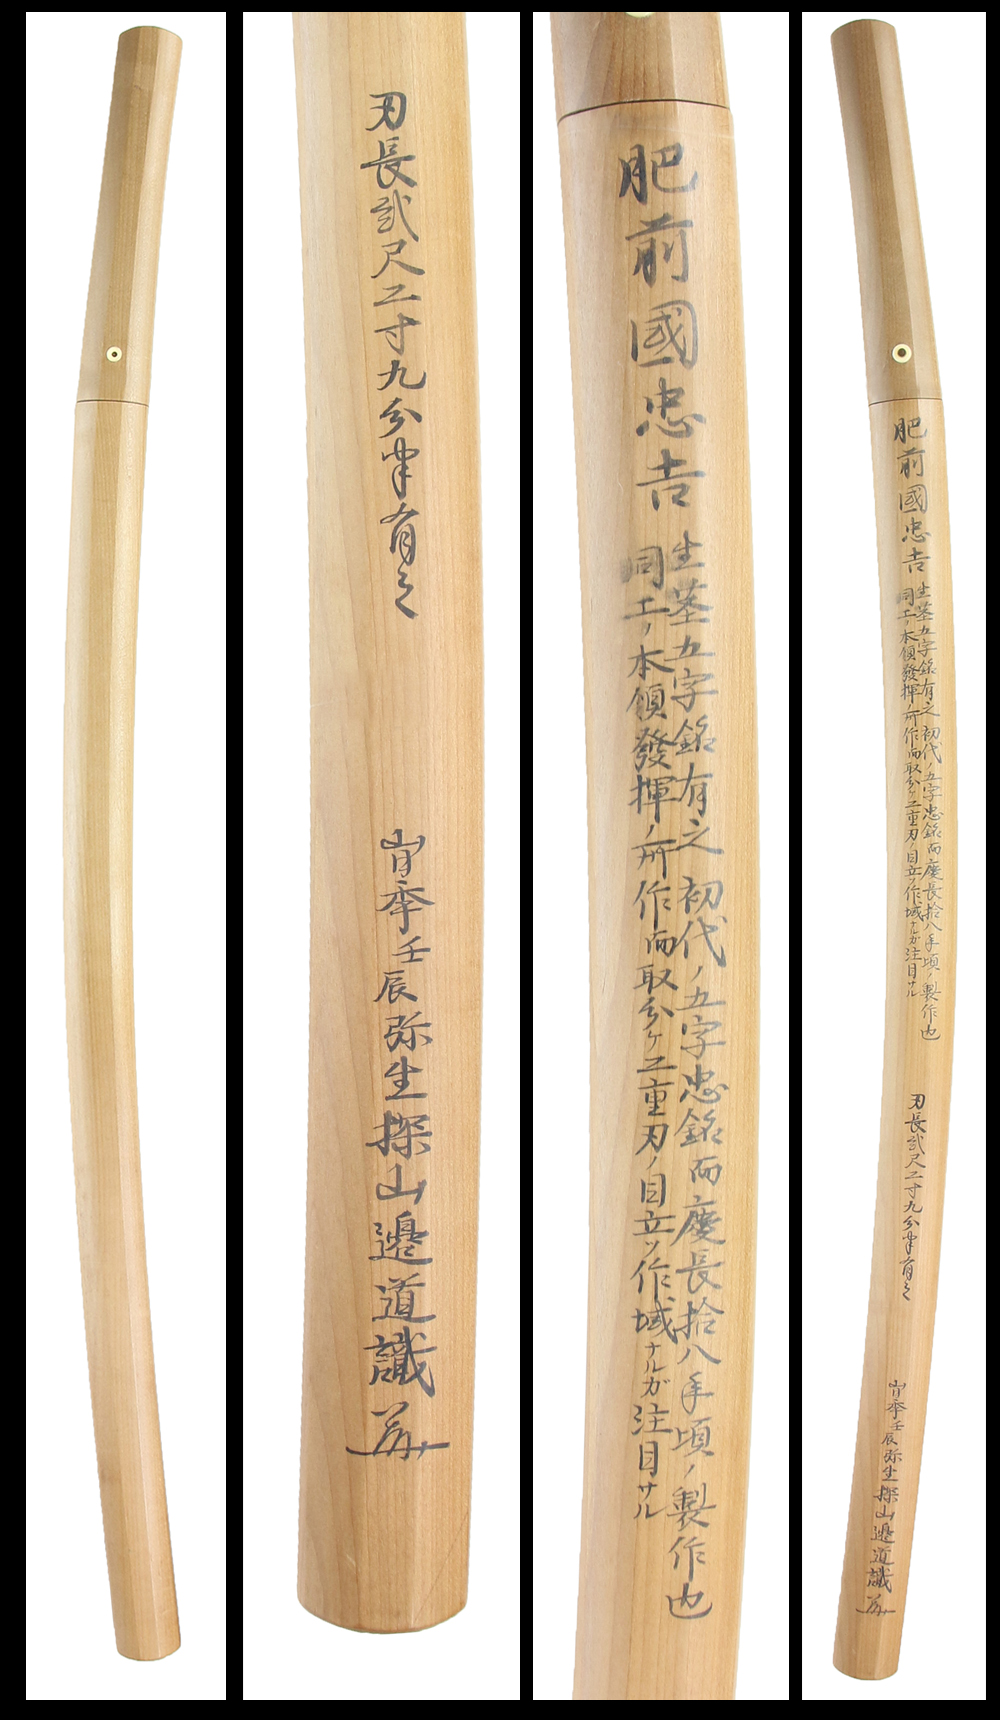 刃長弐尺二寸九分半有之
旹秊壬辰弥生探山邉道識
肥前國忠吉
生莖五字銘有之初代ノ五字忠銘而慶長拾八年頃ノ製作也
同工ノ本領發揮ノ所作而取分ケ二重刃ノ目立ツ作域ナルガ注目サル
肥前國忠吉
生莖五字銘有之初代ノ五字忠銘而慶長拾八年頃ノ製作也
同工ノ本領發揮ノ所作而取分ケ二重刃ノ目立ツ作域ナルガ注目サル
刃長弐尺二寸九分半有之
旹秊壬辰弥生探山邉道識